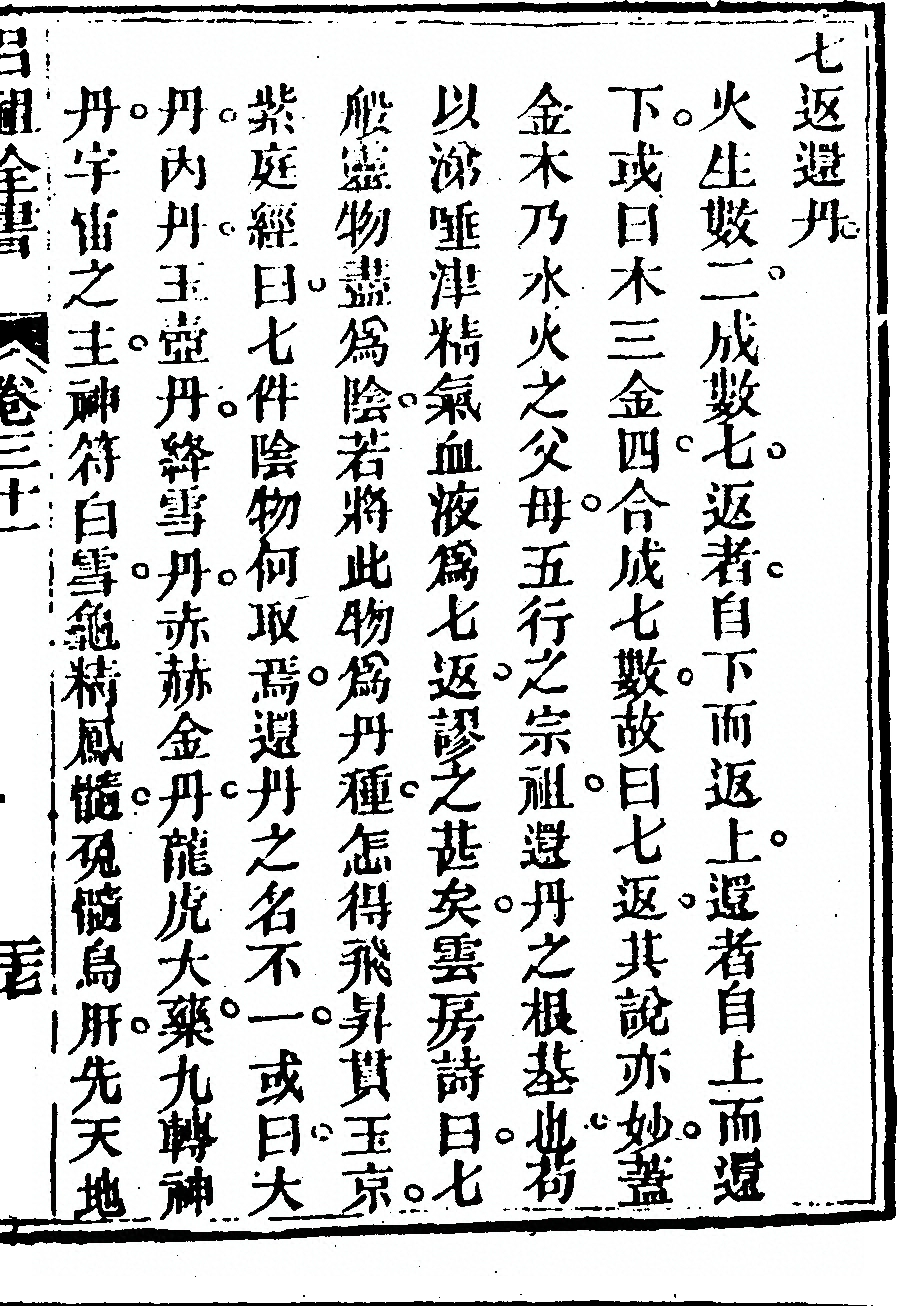 七返還丹。
火生數二。成數七。返者。自下而返上。還者自上而還
下。或曰木三金四。合成七數。故曰七返。其說亦妙。蓋
金木乃水火之父母。五行之宗祖。還丹之根基也。苟
以涕唾津精氣血液爲七返。謬之甚矣。雲房詩曰。七
般靈物盡爲陰。若將此物爲丹種。怎得飛昇貫玉京。
紫庭經曰。七件陰物何取焉。還丹之名不一。或曰。大
丹。內丹。玉壺丹。絳雪丹。赤赫金丹。龍虎大藥。九轉神
丹。宇宙之主。神符白雪。龜精鳳髓。兔髓烏肝。先天地
呂祖全書
卷三十一